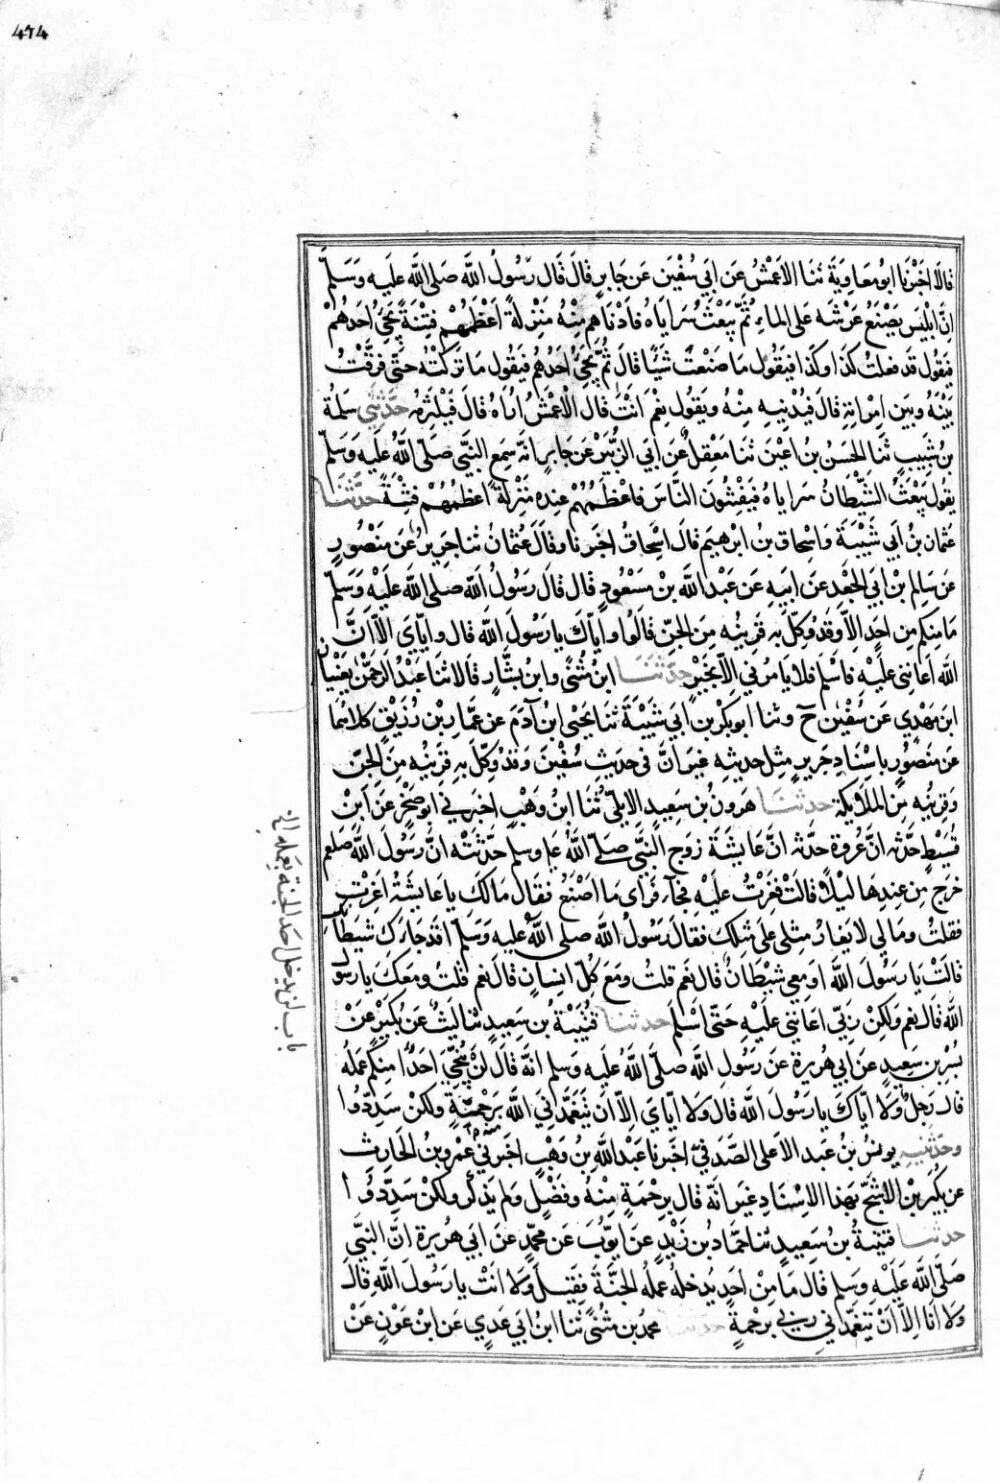 474
قالا اخبرنا ابو معاوية ثنا الاعمش عن ابي سفين عن جابر قال قال رسول الله صلى الله عليه وسلم
ان ابليس يصنع عرشه على الماء ثم يبعث سراياه فادناهم منه منزلة اعظمهم فتنة يجئ احدهم
فيقول قد فعلت كذا وكذا فيقول ما صنعت شيئا قال ثم يجئ احدهم فيقول ما تركته حتى فرقت
بينه وبين امراته قال فيدنيه منه ويقول نعم انت قال الاعمش اراه قال فيلتزمه حدثني سلمة
بن شبيب ثنا الحسن بن اعين ثنا معقل عن ابي الزبير عن جابر انه سمع النبي صلى الله عليه وسلم
يقول يبعث الشيطان سراياه فيفتنون الناس فاعظمهم عنده منزلة اعظمهم فتنة حدثنا
عثمان بن ابي شيبة واسحاق بن ابرهيم قال اسحاق اخبرنا وقال عثمان ثنا جرير عن منصور
عن سالم بن ابي الجعد عن ابيه عن عبد الله بن مسعود قال قال رسول الله صلى الله عليه وسلم
ما منكم من احد الا وقد وكل به قرينه من الجن قالوا واياك يا رسول الله قال واياي الا ان
الله اعانني عليه فاسلم فلا يامرني الا بخير حدثنا ابن مثنى وابن بشار قالا ثنا عبد الرحمن يعنيان
ابن مهدي عن سفين ح وثنا ابو بكر بن ابي شيبة ثنا يحيى ابن آدم عن عمار بن رزيق كلاهما
عن منصور باسناد جرير مثل حديثه غير ان في حديث سفين وقد وكل به قرينه من الجن
وقرينه من الملايكة حدثنا هرون بن سعيد الايلي ثنا ابن وهب اخبرني ابو صخر عن ابن
قسيط حدثه ان عروة حدثه ان عايشة زوج النبي صلى الله عليه وسلم حدثته ان رسول الله صلعم
خرج من عندها ليلا قالت فغرت عليه فجاء فراى ما اصنع فقال مالك يا عايشة اغرت
فقلت ومالي لا يغار مثلى على مثلك فقال رسول الله صلى الله عليه وسلم اقد جاءك شيطانك
قالت يا رسول الله او معي شيطان قال نعم قلت ومع كل انسان قال نعم قلت ومعك يا رسول
الله قال نعم ولكن ربي اعانني عليه حتى اسلم حدثنا قتيبة بن سعيد ثنا ليث عن بكير عن
بسر بن سعيد عن ابي هريرة عن رسول الله صلى الله عليه وسلم انه قال لن ينجي احدا منكم عمله
قال رجل ولا اياك يا رسول الله قال ولا اياي الا ان يتغمدني الله برحمة ولكن سددوا
وحدثنيه يونس بن عبد الاعلى الصدفي اخبرنا عبد الله بن وهب اخبرني عمرو بن الحارث
عن بكير بن الاشج بهذا الاسناد غير انه قال برحمة منه وفضل ولم يذكر ولكن سددوا
حدثنا قتيبة بن سعيد ثنا حماد بن زيد عن ايوب عن محمد عن ابي هريرة ان النبي
صلى الله عليه وسلم قال ما من احد يدخله عمله الجنة فقيل ولا انت يا رسول الله قال
ولا انا الا ان يتغمدني ربي برحمة حدثنا محمد بن مثنى ثنا ابن ابي عدي عن ابن عون عن
باب لن يدخل احد الجنة بعمله الخ